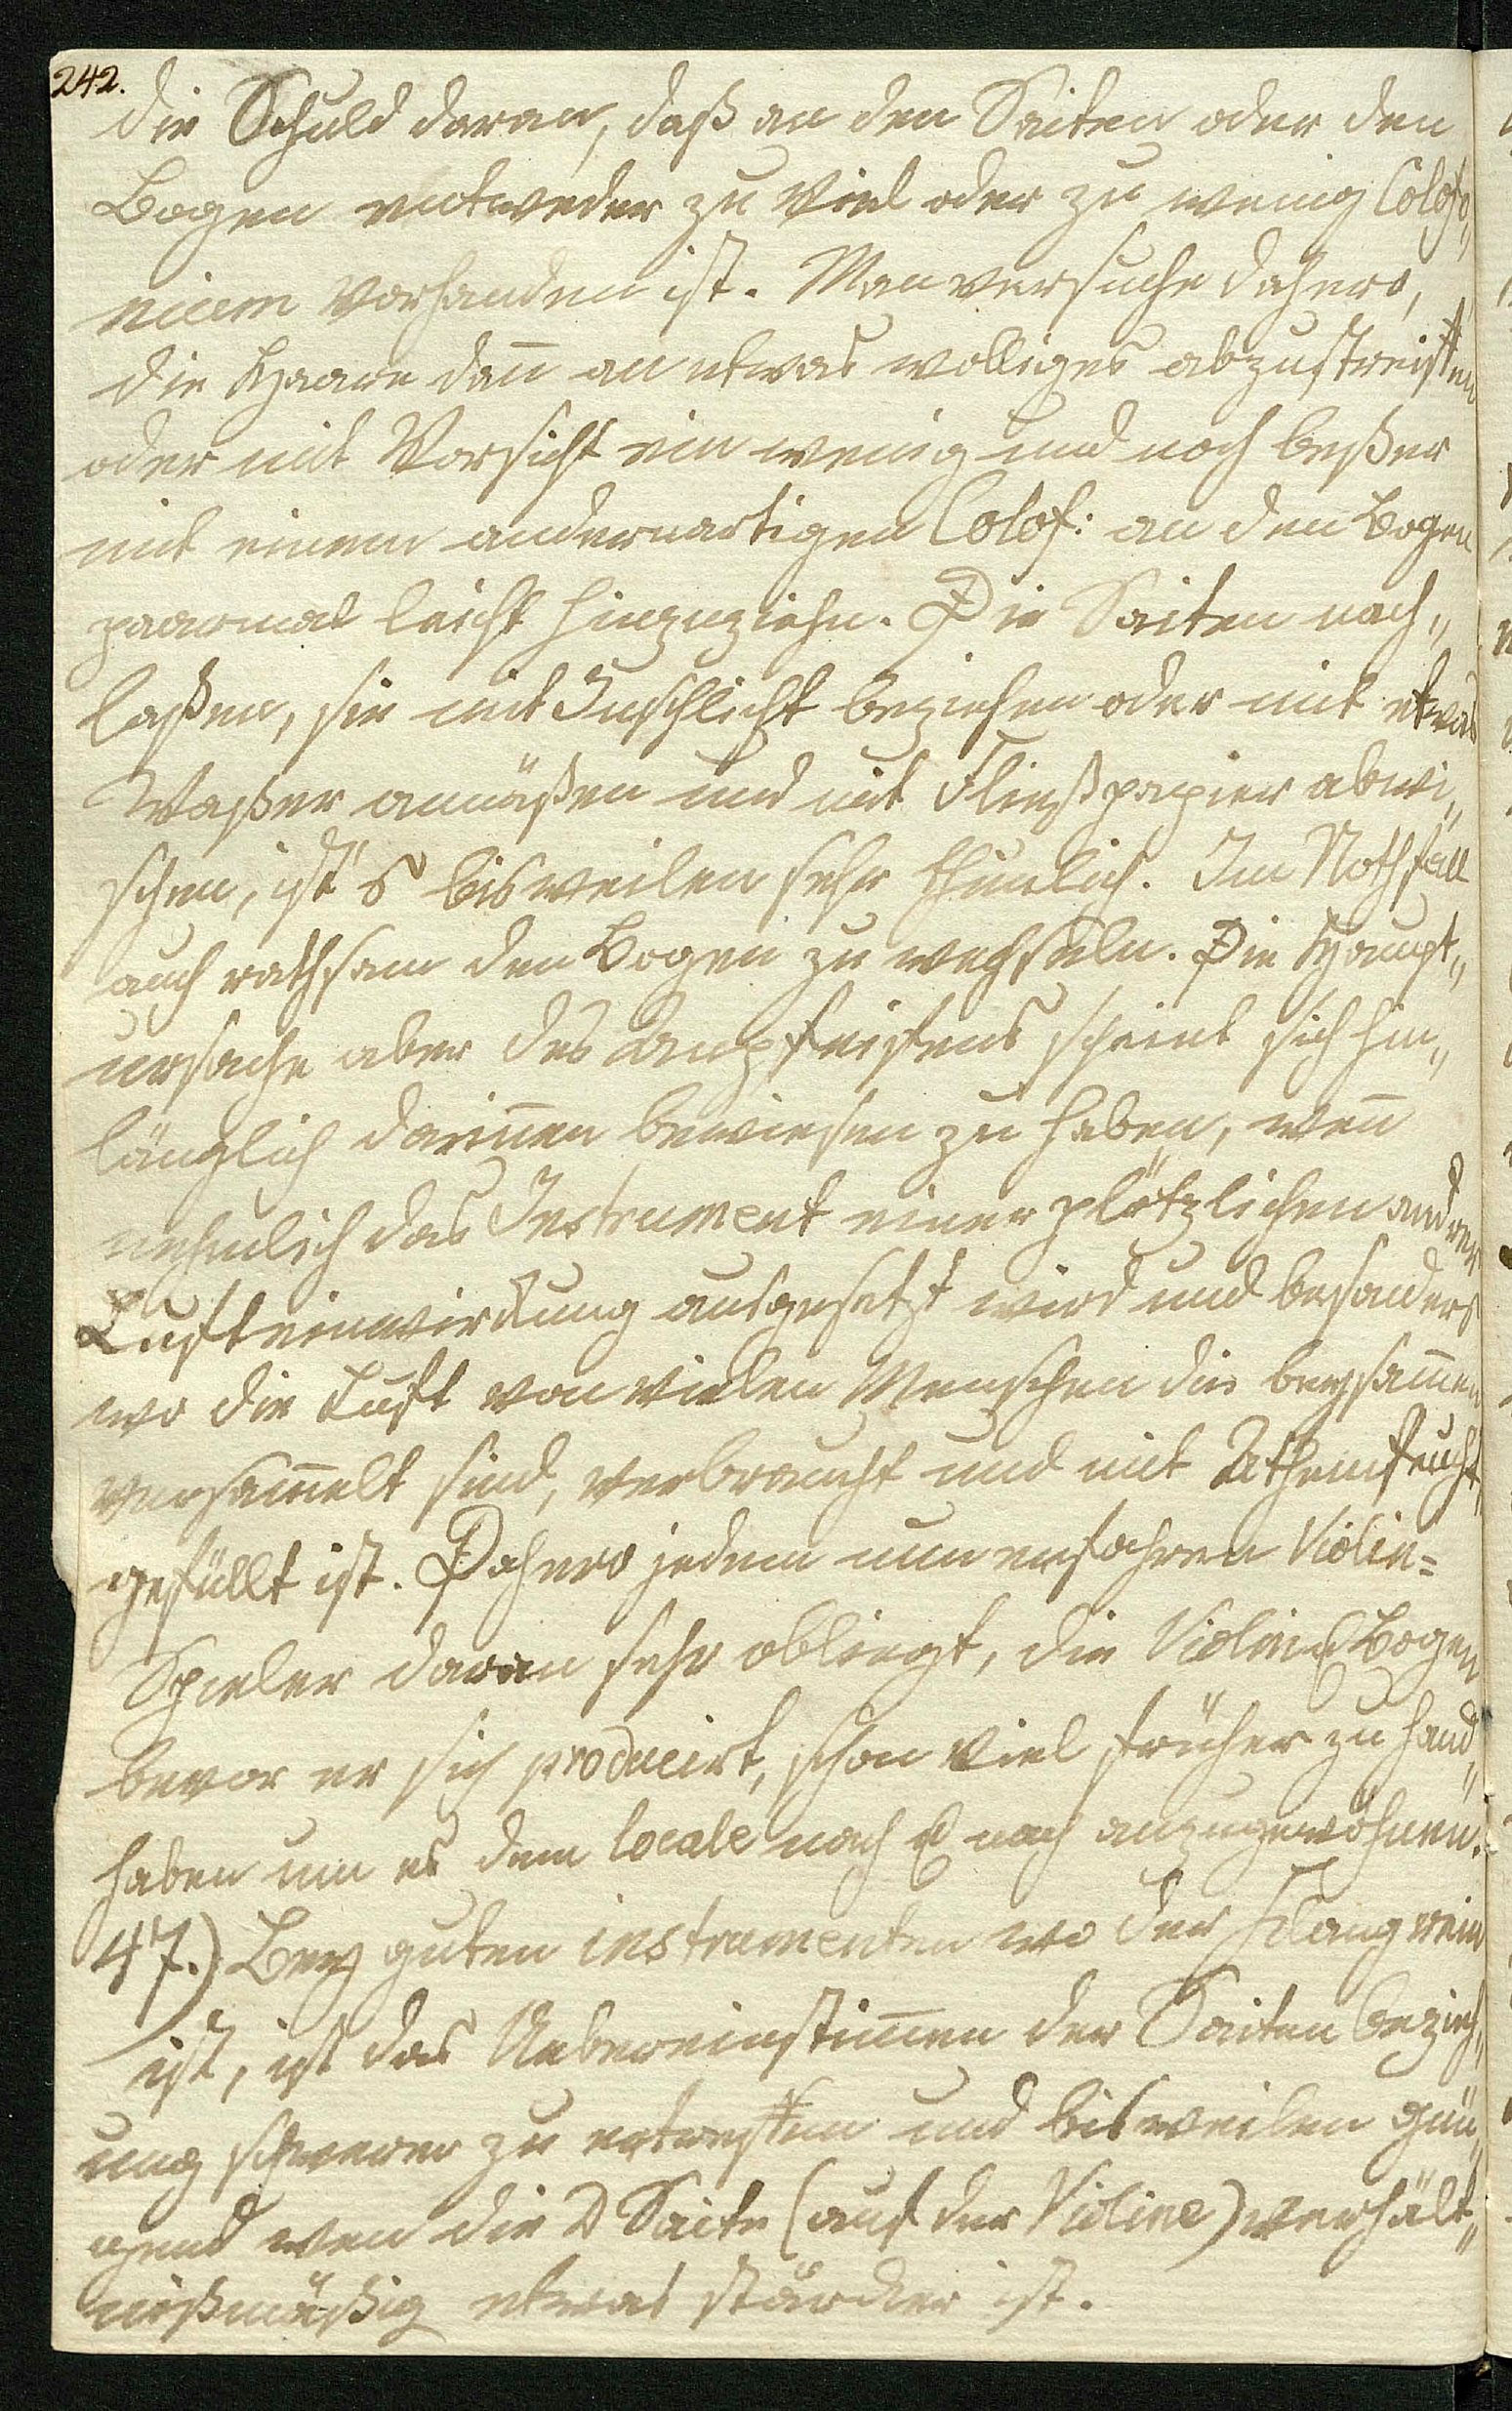 242.
die Schuld daran, daß an den Saiten oder den
Bogen entweder zu viel oder zu wenig Colofo„
nium vorhanden ist. Man versuche dahero,
die Haare dan̄ an etwas wolliges abzustreiffen
oder mit Vorsicht ein wenig und noch beßer
mit einem anderartigen Colof: an den Bogen
paarmal leicht hinzuziehn. Die Saiten nach„
laßen, sie mit Inschlicht beziehen oder mit etwas
Waßer annäßen und mit Fließpapier abwi„
schen, ist's bisweilen sehr thunlich. Im Nothfall
auch rathsam den Bogen zu wechseln. Die Haupt„
ursache aber des Anpfeifens scheint sich hin„
länglich darin̄en bewiesen zu haben, wen̄
nehmlich das Instrument einer plötzlichen andren
Lufteinwirkung ausgesetzt wird und besonders
wo die Luft von vielen Menschen die beysam̄en
versam̄elt sind, verbraucht und mit Athemfeucht„
gefüllt ist. Dahero jedem nun erfahren Violin=
Spieler daran sehr obliegt, die Violin & Bogen
bevor er sich producirt, schon viel früher zu hand„
haben um es dem locale nach & nach anzugewöhnen.
47.) Bey guten instrumenten wo der Klang rein
ist, ist das Uebereinstim̄en der Saiten bezieh„
ung schwerer zu entreffen und bisweilen genü„
gend wen die D Saite (auf der Violine) verhält„
nißmäßig etwas stärcker ist.